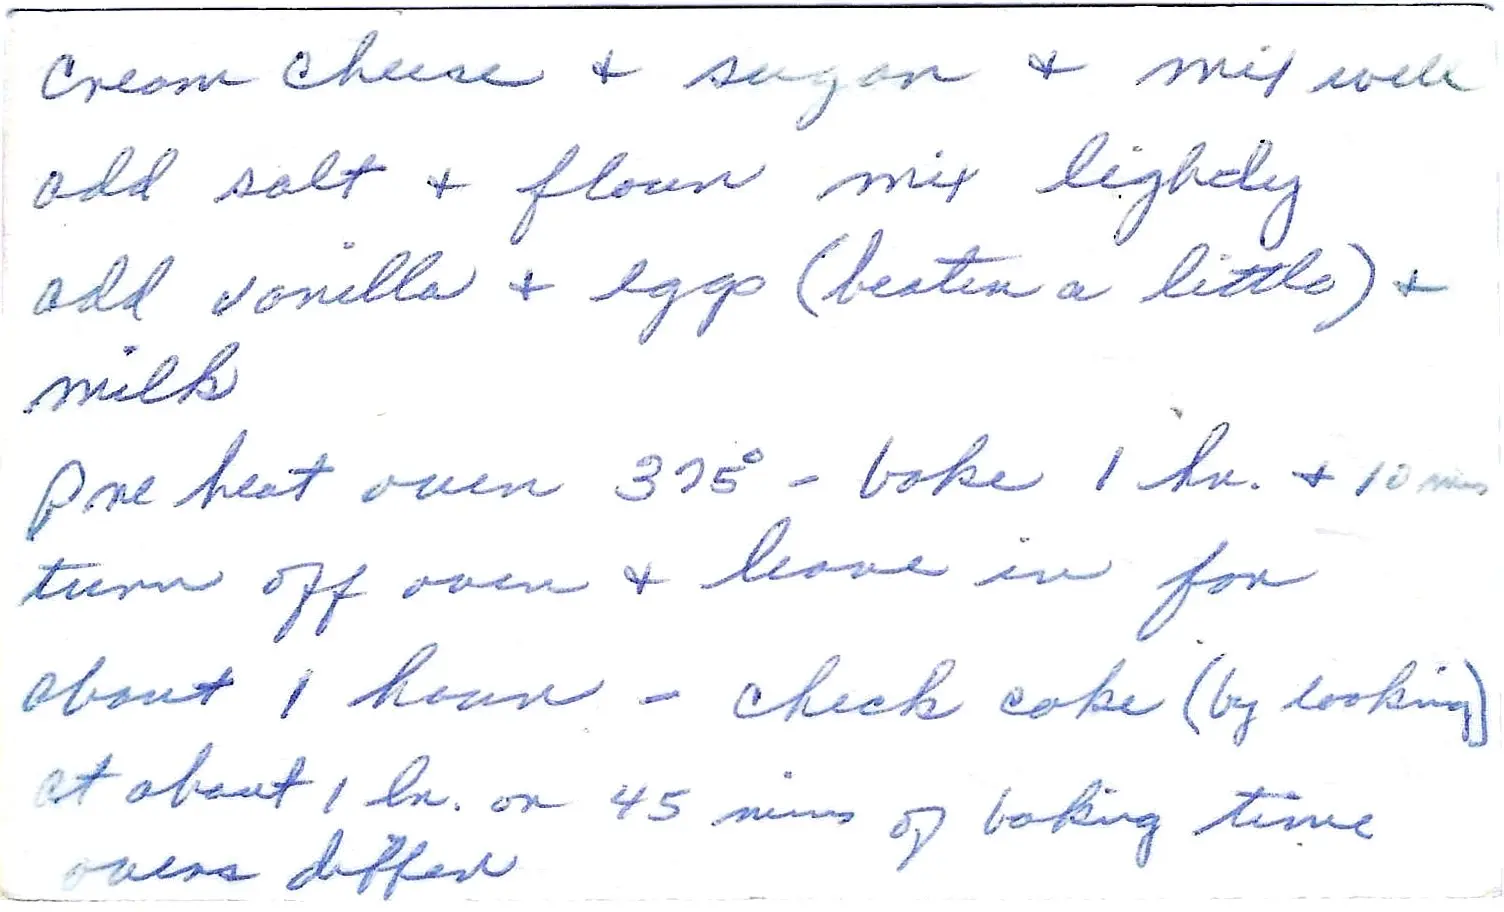 Cream cheese + sugar + mix well
add salt + flour mix lightly
add vanilla + eggs (beaten a little) +
milk
Pre heat oven 375° - bake 1 hr. + 10 mins
turn off oven + leave in for
about 1 hour - check cake (by looking)
at about 1 hr. or 45 mins of baking time
ovens differ